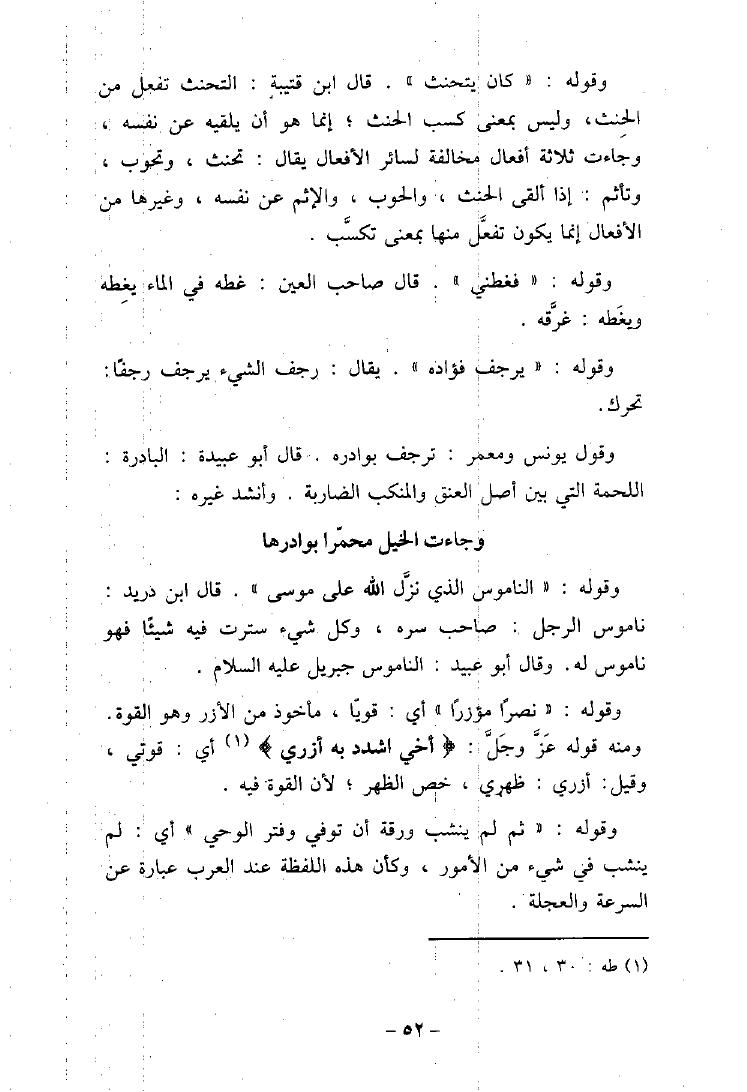 وقوله : « كان يتحنث » . قال ابن قتيبة : التحنث تفعل من
الحِنث، وليس بمعنى كسب الحنث ؛ إنما هو أن يلقيه عن نفسه ،
وجاءت ثلاثة أفعال مخالفة لسائر الأفعال يقال : تحنث ، وتحوب ،
وتأثم : إذا ألقى الحنث ، والحوب ، والإثم عن نفسه ، وغيرها من
الأفعال إنما يكون تفعَّل منها بمعنى تكسَّب .
وقوله : « فغطني » . قال صاحب العين : غطه في الماء يغِطه
ويغَطه : غرَّقه .
وقوله : « يرجف فؤاده » . يقال : رجف الشيء يرجف رجفًا :
تحرك.
وقول يونس ومعمر : ترجف بوادره . قال أبو عبيدة : البادرة :
اللحمة التي بين أصل العنق والمنكب الضاربة . وأنشد غيره :
وجاءت الخيل محمّرا بوادرها
وقوله : « الناموس الذي نزَّل الله على موسى » . قال ابن دريد :
ناموس الرجل : صاحب سره ، وكل شيء سترت فيه شيئًا فهو
ناموس له. وقال أبو عبيد : الناموس جبريل عليه السلام .
وقوله : « نصرًا مؤزرًا » أي : قويًا ، مأخوذ من الأزر وهو القوة.
ومنه قوله عَزَّ وجَلَّ : ﴿ أخي اشدد به أزري ﴾ (١) أي : قوتي ،
وقيل: أزري : ظهري ، خص الظهر ؛ لأن القوة فيه .
وقوله : « ثم لم ينشب ورقة أن توفي وفتر الوحي » أي : لم
ينشب في شيء من الأمور ، وكأن هذه اللفظة عند العرب عبارة عن
السرعة والعجلة .
(١) طه : ٣٠ ، ٣١ .
– ٥٢ –